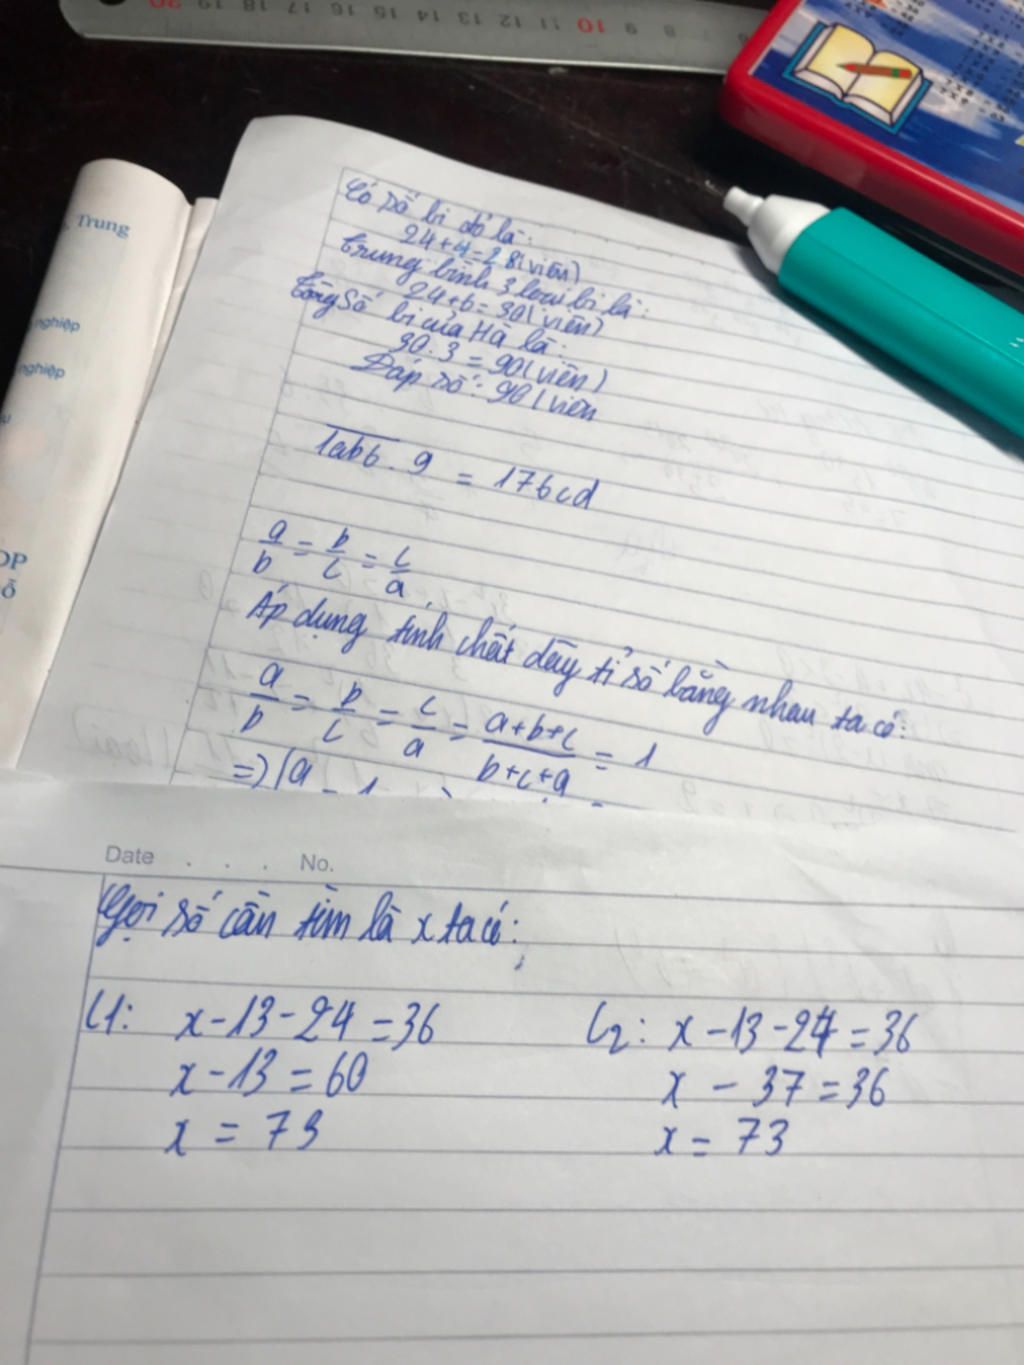 Trung
nghiệp
nghiệp
Có số bi đỏ là:
24+4=28(viên)
trung bình 3 loại bi là:
24+6=30(viên)
tổng số bi của Hà là:
30.3=90(viên)
Đáp số: 90(viên
1ab6.9 = 176cd
a/b = b/c = c/a
Áp dụng tính chất dãy tỉ số bằng nhau ta có:
a/b = b/c = c/a = a+b+c/b+c+a = 1
Date . . . No.
Gọi số cần tìm là x ta có:
C1: x-13-24=36
x-13=60
x=73
C2: x-13-24=36
x-37=36
x=73